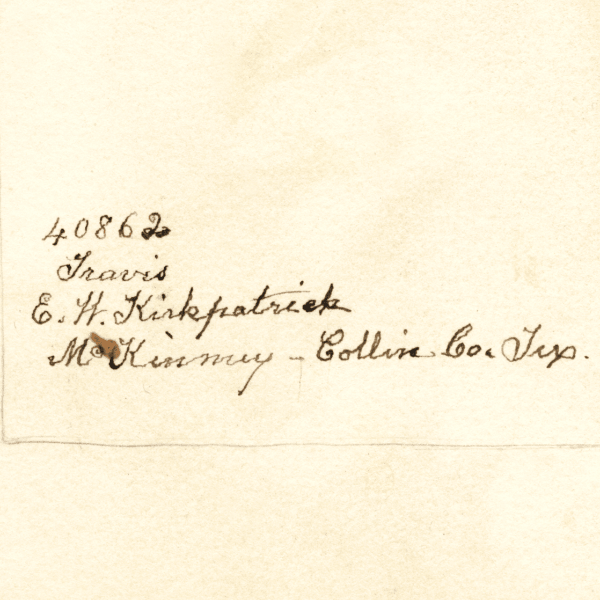 40862
Travis
E. W. Kirkpatrick
McKinney - Collin Co. Tex.